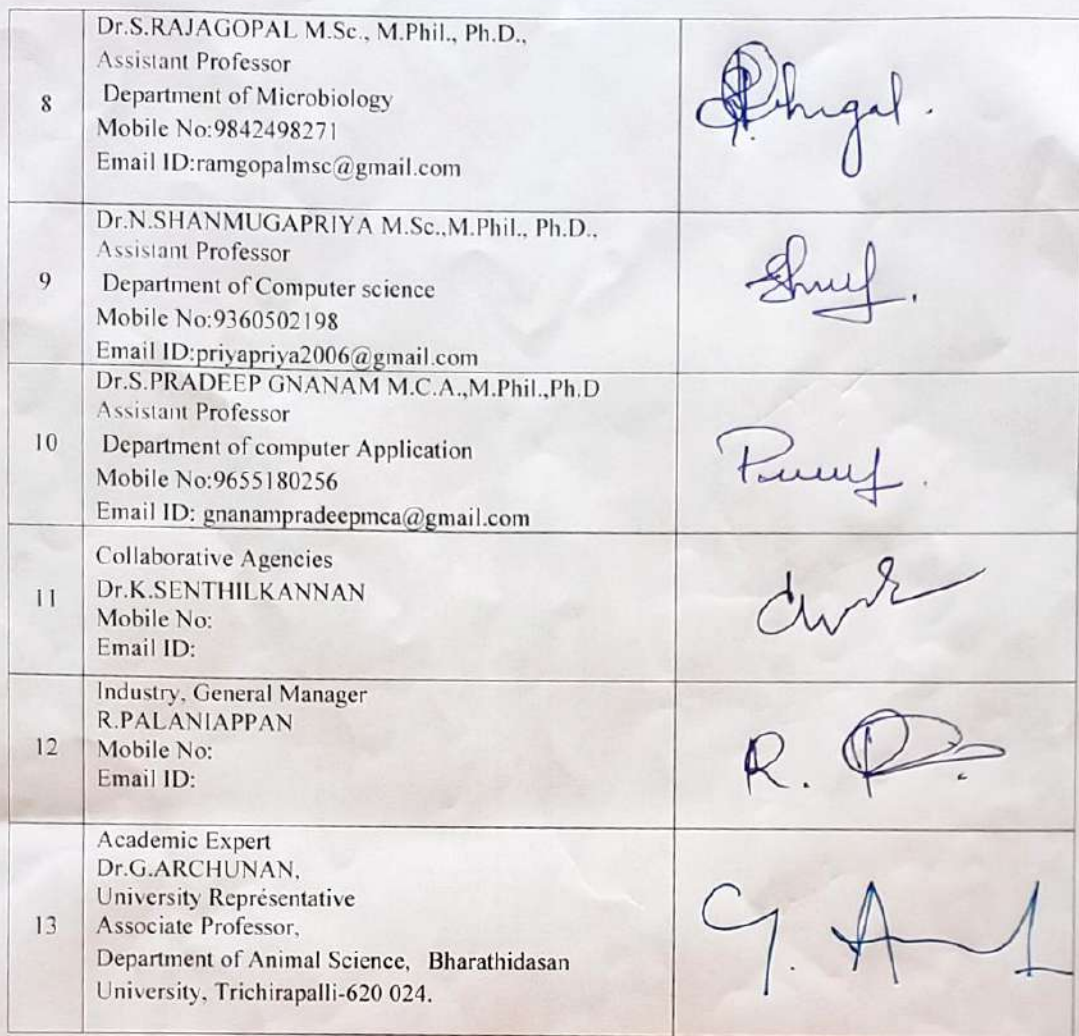 8
Dr.S.RAJAGOPAL M.Sc., M.Phil., Ph.D.,
Assistant Professor
Department of Microbiology
Mobile No:9842498271
Email ID:ramgopalmsc@gmail.com
9
Dr.N.SHANMUGAPRIYA M.Sc.,M.Phil., Ph.D.,
Assistant Professor
Department of Computer science
Mobile No:9360502198
Email ID:priyapriya2006@gmail.com
10
Dr.S.PRADEEP GNANAM M.C.A.,M.Phil.,Ph.D
Assistant Professor
Department of computer Application
Mobile No:9655180256
Email ID: gnanampradeepmca@gmail.com
11
Collaborative Agencies
Dr.K.SENTHILKANNAN
Mobile No:
Email ID:
12
Industry, General Manager
R.PALANIAPPAN
Mobile No:
Email ID:
R.
13
Academic Expert
Dr.G.ARCHUNAN,
University Representative
Associate Professor,
Department of Animal Science, Bharathidasan
University, Trichirapalli-620 024.